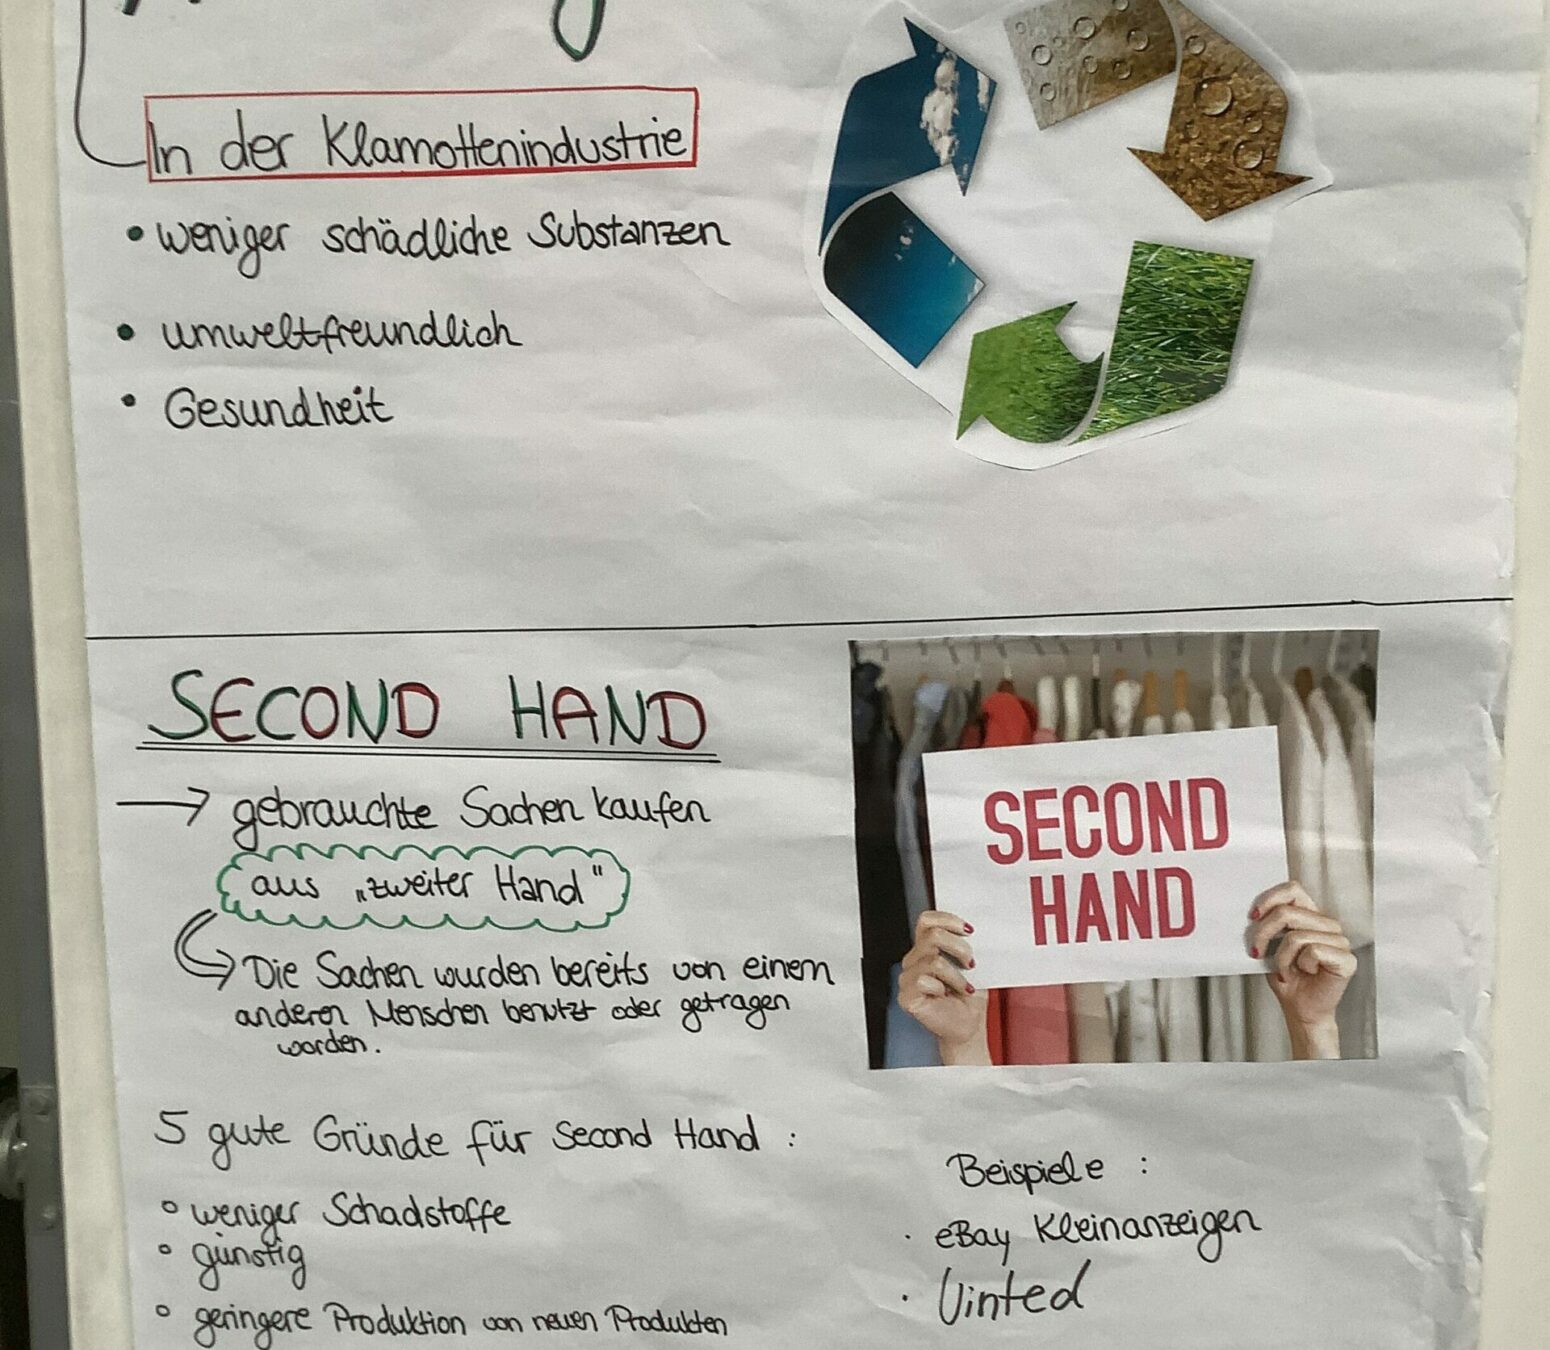 In der Klamottenindustrie
• weniger schädliche Substanzen
• umweltfreundlich
• Gesundheit
SECOND HAND
→ gebrauchte Sachen kaufen
aus „zweiter Hand"
Die Sachen wurden bereits von einem
anderen Menschen benutzt oder getragen
worden.
SECOND
HAND
5 gute Gründe für Second Hand :
° weniger Schadstoffe
° günstig
° geringere Produktion von neuen Produkten
Beispiele :
· eBay Kleinanzeigen
· Vinted